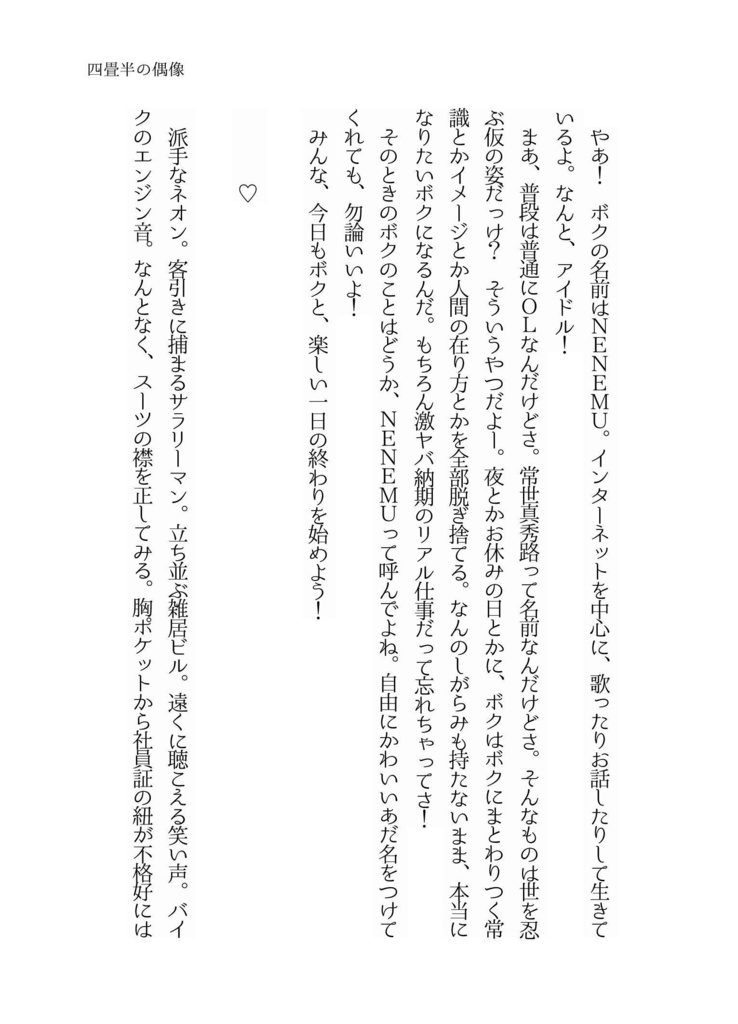 四畳半の偶像
やあ！　ボクの名前はＮＥＮＥＭＵ。インターネットを中心に、歌ったりお話したりして生きて
いるよ。なんと、アイドル！
まあ、普段は普通にＯＬなんだけどさ。常世真秀路って名前なんだけどさ。そんなものは世を忍
ぶ仮の姿だっけ？　そういうやつだよー。夜とかお休みの日とかに、ボクはボクにまとわりつく常
識とかイメージとか人間の在り方とかを全部脱ぎ捨てる。なんのしがらみも持たないまま、本当に
なりたいボクになるんだ。もちろん激ヤバ納期のリアル仕事だって忘れちゃってさ！
そのときのボクのことはどうか、ＮＥＮＥＭＵって呼んでよね。自由にかわいいあだ名をつけて
くれても、勿論いいよ！
みんな、今日もボクと、楽しい一日の終わりを始めよう！
♡
派手なネオン。客引きに捕まるサラリーマン。立ち並ぶ雑居ビル。遠くに聴こえる笑い声。バイ
クのエンジン音。なんとなく、スーツの襟を正してみる。胸ポケットから社員証の紐が不格好には